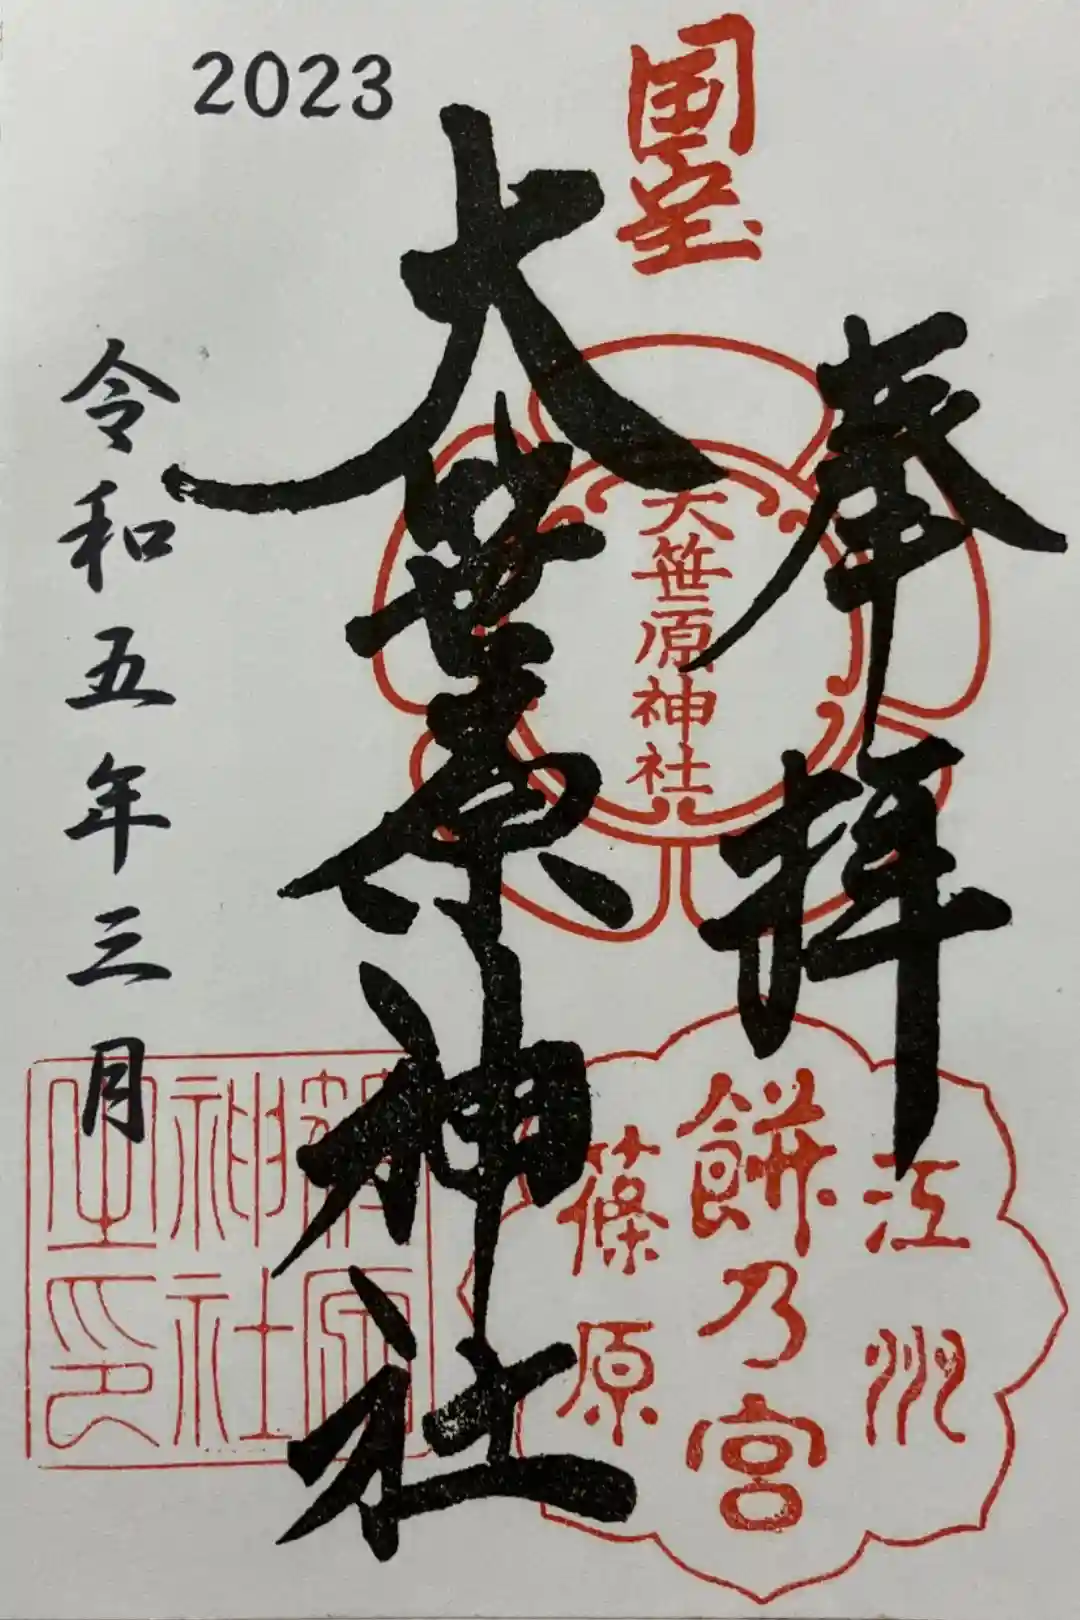 2023
国宝
奉拝
大笹原神社
大笹原神社
令和五年三月
江州
餅乃宮
篠原
篠原
神社
之印